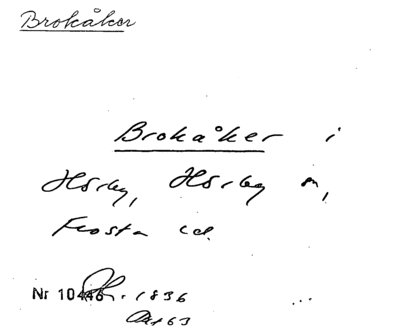 Brokåker
Brokåker i
Hörby, Hörby sn,
Frosta hd.
Nr 10446. 1836
Akt 63